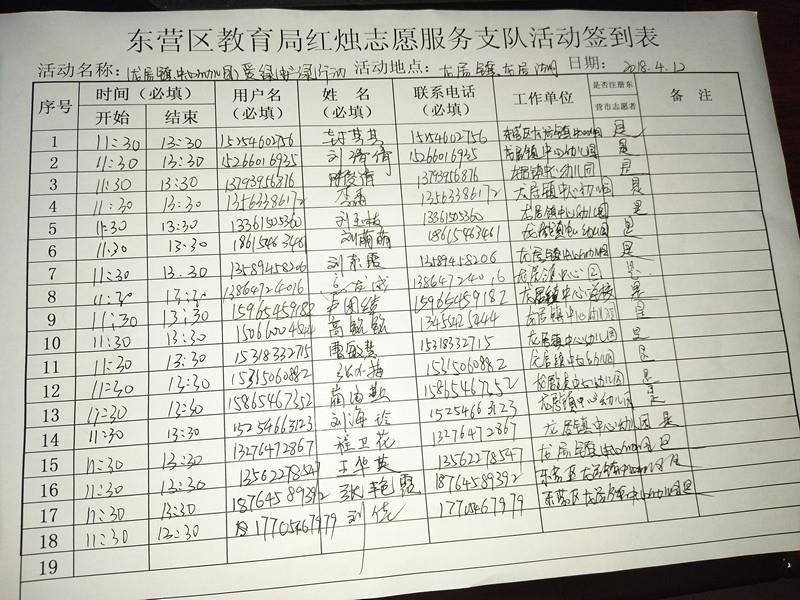 东营区教育局红烛志愿服务支队活动签到表
活动名称: 龙居镇中心幼儿园爱绿护绿行动 活动地点: 龙居镇龙居湖 日期: 2018.4.12
序号 时间(必填) 用户名(必填) 姓名(必填) 联系电话(必填) 工作单位 是否注册东营市志愿者 备注
开始 结束
1 11:30 13:30 15254602756 15254602756 是
2 11:30 13:30 15266016935 刘倩倩 15266016935 龙居镇中心幼儿园 是
3 11:30 13:30 13793956876 13793956876 龙居镇中心幼儿园 是
4 11:30 13:30 13563386172 13563386172 龙居镇中心幼儿园 是
5 11:30 13:30 13361505360 13361505360 龙居镇中心幼儿园 是
6 11:30 13:30 刘萌萌 18615463461 龙居镇中心幼儿园 是
7 11:30 13:30 13589458206 13589458206 龙居镇中心幼儿园 是
8 11:30 13:30 13864724016 13864724016 是
9 11:30 13:30 15965459182 15965459182 龙居镇中心学校 是
10 11:30 13:30 龙居镇中心幼儿园 是
11 11:30 13:30 15318332715 曹敏慧 15318332715 龙居镇中心幼儿园 是
12 11:30 13:30 15315060882 张水梅 15315060882 龙居镇中心幼儿园 是
13 13:30 15865467352 15865467352 龙居镇中心幼儿园 是
14 11:30 13:30 15254663123 刘海玲 15254663123 龙居镇中心幼儿园 是
15 13:30 13276472867 程卫花 13276472867 龙居镇中心幼儿园 是
16 11:30 13:30 13562278547 王华英 13562278547 龙居镇中心幼儿园 是
17 11:30 13:30 18764589392 张艳霞 18764589392 东营区龙居镇中心幼儿园 是
18 11:30 17705467979 刘佳 17705467979 东营区龙居镇中心幼儿园 是
19